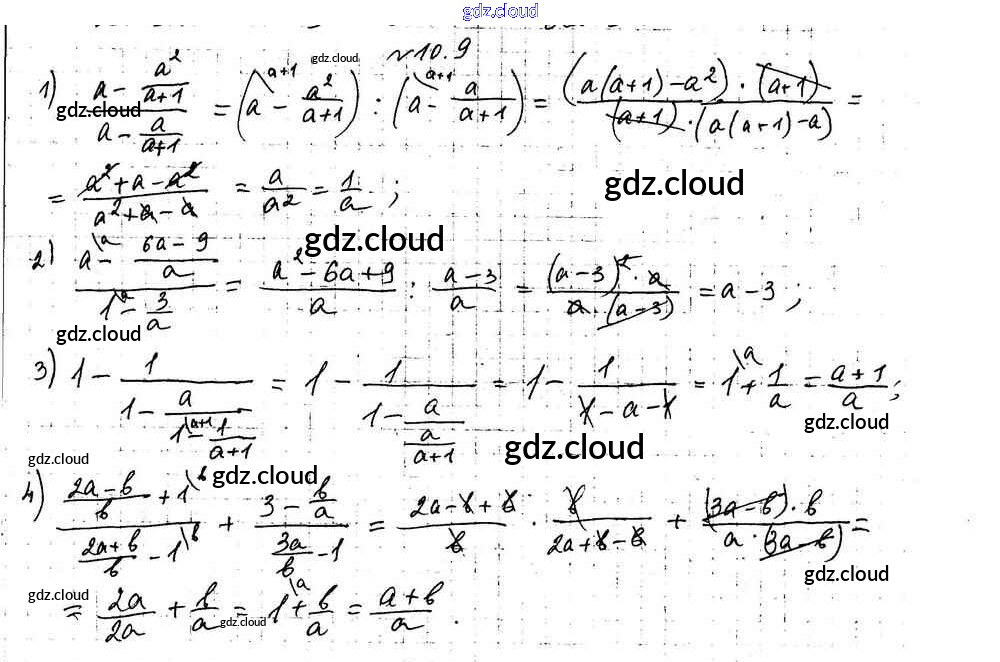 gdz.cloud
№10.9
1) (a - a²/(a+1))/(a - a/(a+1)) = (a\a+1 - a²/(a+1)) : (a\a+1 - a/(a+1)) = ((a(a+1)-a²)·(a+1))/((a+1)·(a(a+1)-a)) =
= (a²+a-a²)/(a²+a-a) = a/a² = 1/a ;
2) (a\a - (6a-9)/a)/(1\a - 3/a) = (a²-6a+9)/a : (a-3)/a = ((a-3)²·a)/(a·(a-3)) = a-3 ;
3) 1 - 1/(1 - a/(1\a+1 - 1/(a+1))) = 1 - 1/(1 - a/(a/(a+1))) = 1 - 1/(1-a-1) = 1\a + 1/a = (a+1)/a ;
4) ((2a-b)/b + 1\b)/((2a+b)/b - 1\b) + (3 - b/a)/(3a/b - 1) = (2a-b+b)/b · b/(2a+b-b) + ((3a-b)·b)/(a·(3a-b)) =
= 2a/2a + b/a = 1\a + b/a = (a+b)/a .
gdz.cloud
gdz.cloud
gdz.cloud
gdz.cloud
gdz.cloud
gdz.cloud
gdz.cloud
gdz.cloud
gdz.cloud
gdz.cloud
gdz.cloud
gdz.cloud